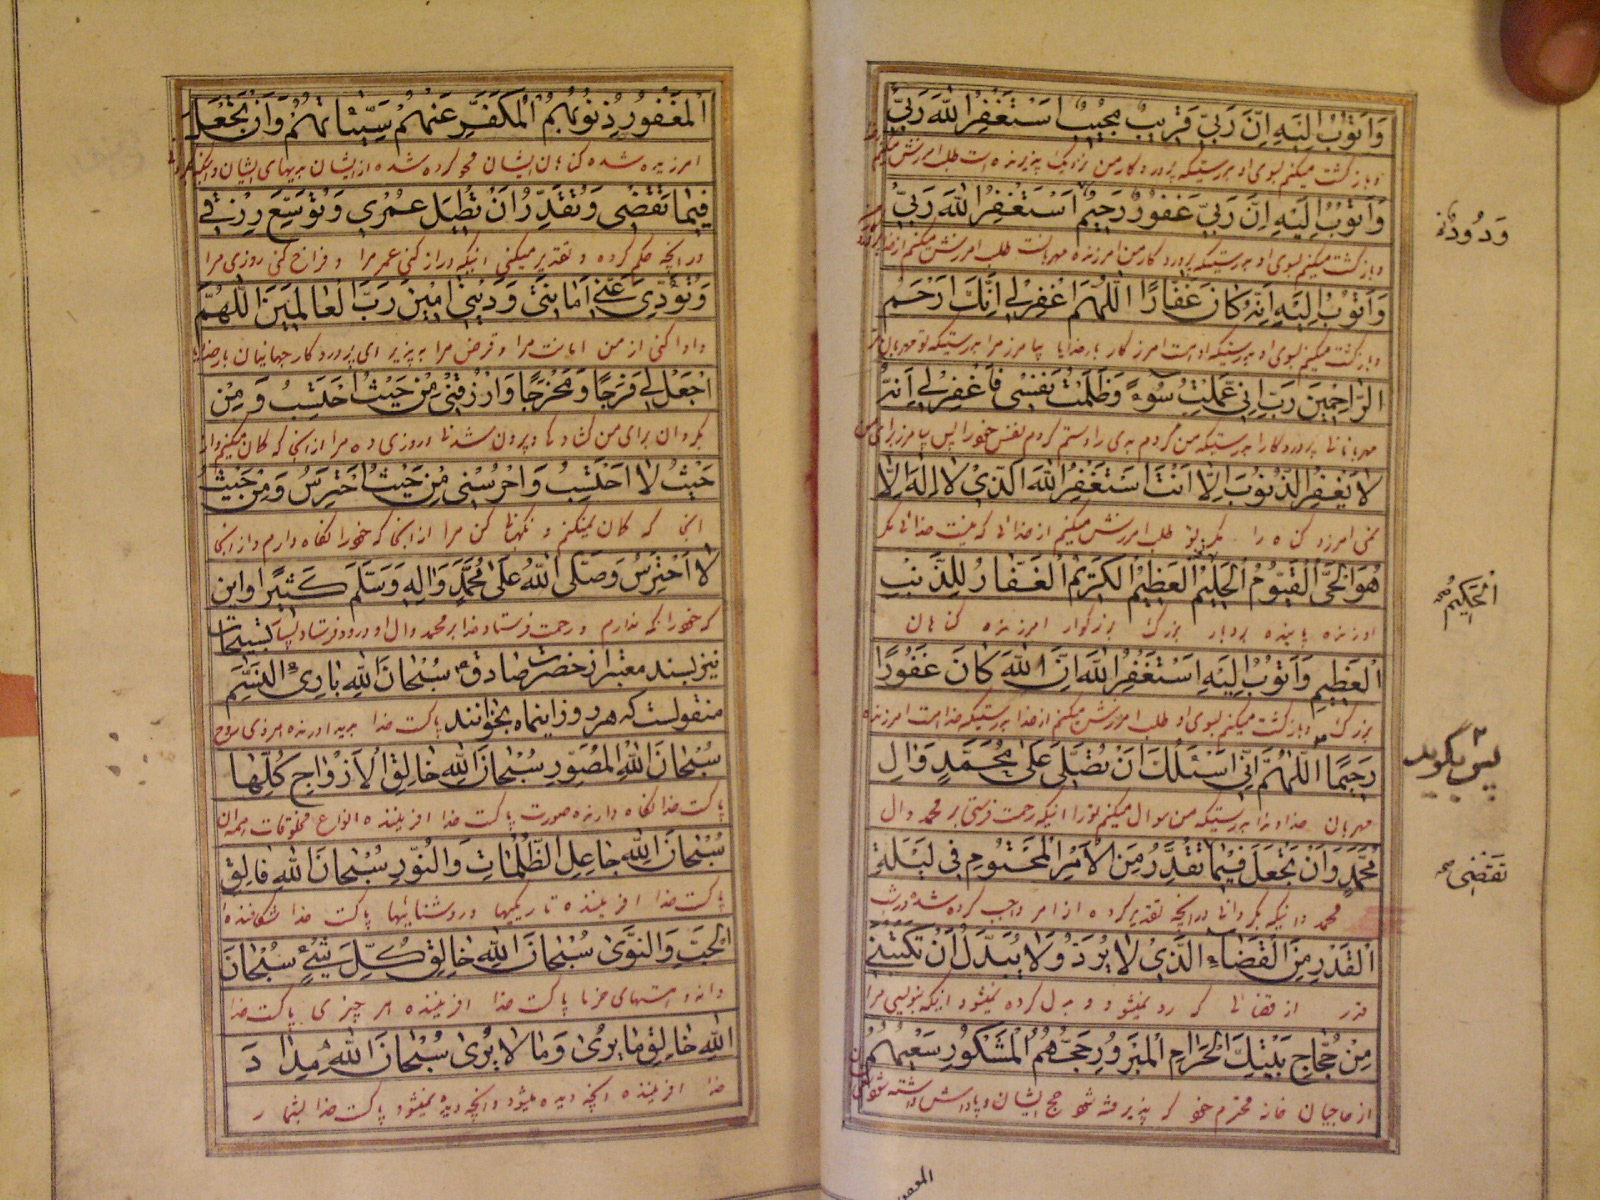 وَاَتُوبُ اِلَيْهِ اِنَّ رَبّي قَريبٌ مُجيبٌ اَسْتَغْفِرُ اللّهَ رَبّي
و بازگشت میکنم بسوی او بدرستیکه پروردگار من نزدیک پذیرنده است طلب امرزش میکنم
وَاَتُوبُ اِلَيْهِ اِنَّ رَبّي غَفُورٌ رَحيمٌ اَسْتَغْفِرُ اللّهَ رَبّي
ودود
و بازگشت میکنم بسوی او بدرستیکه پروردگار من امرزنده مهربانست طلب امرزش میکنم از
وَاَتُوبُ اِلَيْهِ اِنَّهُ كانَ غَفّارًا اَللّهُمَّ اغْفِرْ لي اِنَّكَ اَرْحَمُ
و بازگشت میکنم بسوی او بدرستیکه اوست امرزکار بارخدایا بیامرز مرا بدرستیکه تو مهربان تر
الرّاحِمينَ رَبِّ اِنّي عَمِلْتُ سُوءً وَظَلَمْتُ نَفْسي فَاغْفِرْ لي اِنَّهُ
پروردگارا بدرستیکه من کردم بدی را و ستم کردم نفس خود را پس بیامرز برای من
لا يَغْفِرُ الذُّنُوبَ اِلّا اَنْتَ اَسْتَغْفِرُ اللّهَ الَّذي لا اِلهَ اِلّا
نمی امرزد کناه را مکر تو طلب امرزش میکنم از خدائی که نیست خدائی مکر
هُوَ الْحَيُّ الْقَيُّومُ الْحَليمُ الْعَظيمُ الْكَريمُ الْغَفّارُ لِلذَّنْبِ
الحكيم
او زنده پاینده بردبار بزرک بزرکوار امرزنده کناهان
الْعَظيمِ وَاَتُوبُ اِلَيْهِ اَسْتَغْفِرُ اللّهَ اِنَّ اللّهَ كانَ غَفُورًا
بزرک و بازگشت میکنم بسوی او طلب امرزش میکنم از خدا بدرستیکه خداست امرزنده
رَحيمًا اَللّهُمَّ اِنّي اَسْئَلُكَ اَنْ تُصَلِّيَ عَلى مُحَمَّدٍ وَالِ
پس بگوید
مهربان خداوندا بدرستیکه من سوال میکنم تو را اینکه رحمت فرستی بر محمد و ال
مُحَمَّدٍ وَاَنْ تَجْعَلَ فيما تُقَدِّرُ مِنَ الْاَمْرِ الْمَحْتُومِ في لَيْلَةِ
تقضی
محمد و اینکه بکردانی در انچه تقدیر کرده از امر واجب کرده شده در شب
الْقَدْرِ مِنَ الْقَضاءِ الَّذي لا يُرَدُّ وَلا يُبَدَّلُ اَنْ تَكْتُبَني
قدر از قضائی که رد نمیشود و بدل کرده نمیشود اینکه بنویسی مرا
مِنْ حُجّاجِ بَيْتِكَ الْحَرامِ الْمَبْرُورِ حَجُّهُمُ الْمَشْكُورِ سَعْيُهُمُ
از حاجیان خانه محترم خود که پذیرفته شود حج ایشان و پاداش داشته شود
المغفور
الْمَغْفُورِ ذُنُوبُهُمُ الْمُكَفَّرِ عَنْهُمْ سَيِّئاتُهُمْ وَاَنْ تَجْعَلَ
امرزیده شده کناهان ایشان محو کرده شده از ایشان بدیهای ایشان و اینکه
فيما تَقْضي وَتُقَدِّرُ اَنْ تُطيلَ عُمْري وَتُوَسِّعَ رِزْقي
در انچه حکم کرده و تقدیر میکنی اینکه دراز کنی عمر مرا و فراخ کنی روزی مرا
وَتُؤَدِّيَ عَنّي اَمانَتي وَدَيْني امينَ رَبَّ الْعالَمينَ اَللّهُمَّ
و ادا کنی از من امانت مرا و قرض مرا بپذیر ای پروردکار جهانیان بارخدایا
اجْعَلْ لي فَرَجًا وَمَخْرَجًا وَارْزُقْني مِنْ حَيْثُ اَحْتَسِبُ وَمِنْ
بکردان برای من کشادگی و بیرون شدنی و روزی ده مرا از انجا که کمان میکنم و از
حَيْثُ لا اَحْتَسِبُ وَاحْرُسْني مِنْ حَيْثُ اَحْتَرِسُ وَمِنْ حَيْثُ
انجا که کمان نمیکنم و نکهبانی کن مرا از انجا که خود را نکاه دارم و از انجا
لا اَحْتَرِسُ وَصَلَّى اللّهُ عَلى مُحَمَّدٍ وَالِهِ وَسَلَّمَ كَثيرًا واین
که خود را نکه ندارم و رحمت فرستاد خدا بر محمد و ال او و درود فرستاد بسیار تسبیحات
نیز بسند معتبر از حضرت صادق سُبْحانَ اللّهِ بارِئِ النَّسَمِ
منقولست که هر روز اینماه بخوانند پاکست خدا پدید اورنده هر ذی روح
سُبْحانَ اللّهِ الْمُصَوِّرِ سُبْحانَ اللّهِ خالِقِ الْاَزْواجِ كُلِّها
پاکست خدا نکاه دارنده صورت پاکست خدا افریننده انواع مخلوقات همه ان
سُبْحانَ اللّهِ جاعِلِ الظُّلُماتِ وَالنُّورِ سُبْحانَ اللّهِ فالِقِ
پاکست خدا افریننده تاریکیها و روشنائیها پاکست خدا شکافنده
الْحَبِّ وَالنَّوى سُبْحانَ اللّهِ خالِقِ كُلِّ شَيْءٍ سُبْحانَ
دانه و استهای خرما پاکست خدا افریننده هر چیزی پاکست خدا
اللّهِ خالِقِ ما يُرى وَما لا يُرى سُبْحانَ اللّهِ مِدادَ
خدا افریننده انچه دیده میشود و انچه دیده نمیشود پاکست خدا بشمار